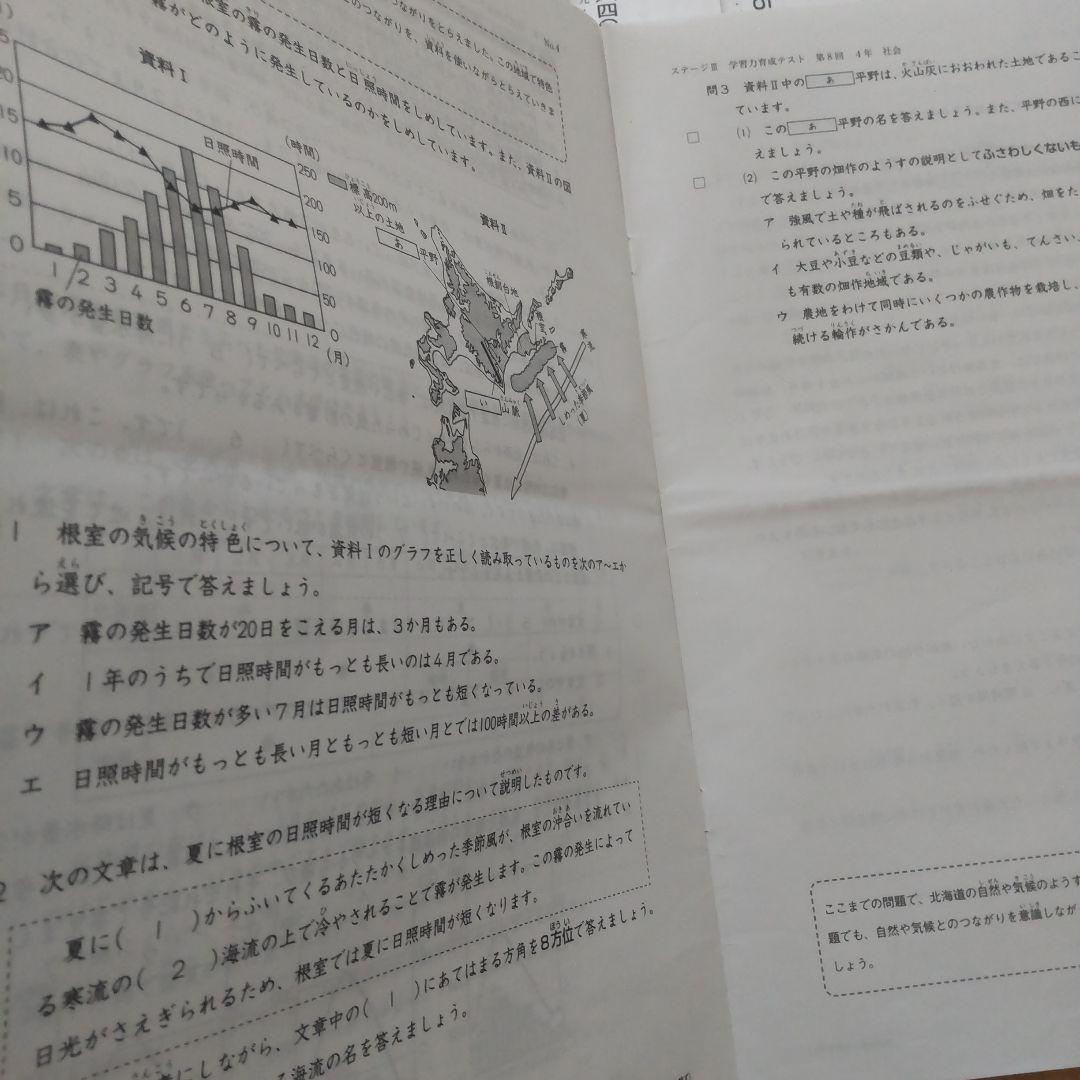 No.4
つながりをとらえました。この地域で特色
のつながりを、資料を使いながらとらえていきま
根室の霧の発生日数と日照時間をしめしています。また、資料Ⅱの図
霧がどのように発生しているのかをしめしています。
資料Ⅰ
20
15
10
5
0
日照時間
(時間)
250
200
150
100
50
0
1 2 3 4 5 6 7 8 9 10 11 12 (月)
霧の発生日数
標高200m
以上の土地
資料Ⅱ
あ 平野
根釧台地
根室
霧
い 山脈
しめった季節風
(夏)
1 根室の気候の特色について、資料Ⅰのグラフを正しく読み取っているものを次のア～エか
ら選び、記号で答えましょう。
ア 霧の発生日数が20日をこえる月は、3か月もある。
イ 1年のうちで日照時間がもっとも長いのは4月である。
ウ 霧の発生日数が多い7月は日照時間がもっとも短くなっている。
エ 日照時間がもっとも長い月ともっとも短い月とでは100時間以上の差がある。
2 次の文章は、夏に根室の日照時間が短くなる理由について説明したものです。
夏に( 1 )からふいてくるあたたかくしめった季節風が、根室の沖合いを流れてい
る寒流の( 2 )海流の上で冷やされることで霧が発生します。この霧の発生によって
日光がさえぎられるため、根室では夏に日照時間が短くなります。
にしながら、文章中の( 1 )にあてはまる方角を8方位で答えましょう。
る海流の名を答えましょう。
ステージⅢ 学習力育成テスト 第8回 4年 社会
問3 資料Ⅱ中の あ 平野は、火山灰におおわれた土地であるこ
ています。
(1) この あ 平野の名を答えましょう。また、平野の西に
えましょう。
(2) この平野の畑作のようすの説明としてふさわしくないも
で答えましょう。
ア 強風で土や種が飛ばされるのをふせぐため、畑をた
られているところもある。
イ 大豆や小豆などの豆類や、じゃがいも、てんさい、
も有数の畑作地域である。
ウ 農地をわけて同時にいくつかの農作物を栽培し、
続ける輪作がさかんである。
ここまでの問題で、北海道の自然や気候のようす
題でも、自然や気候とのつながりを意識しなが
しょう。